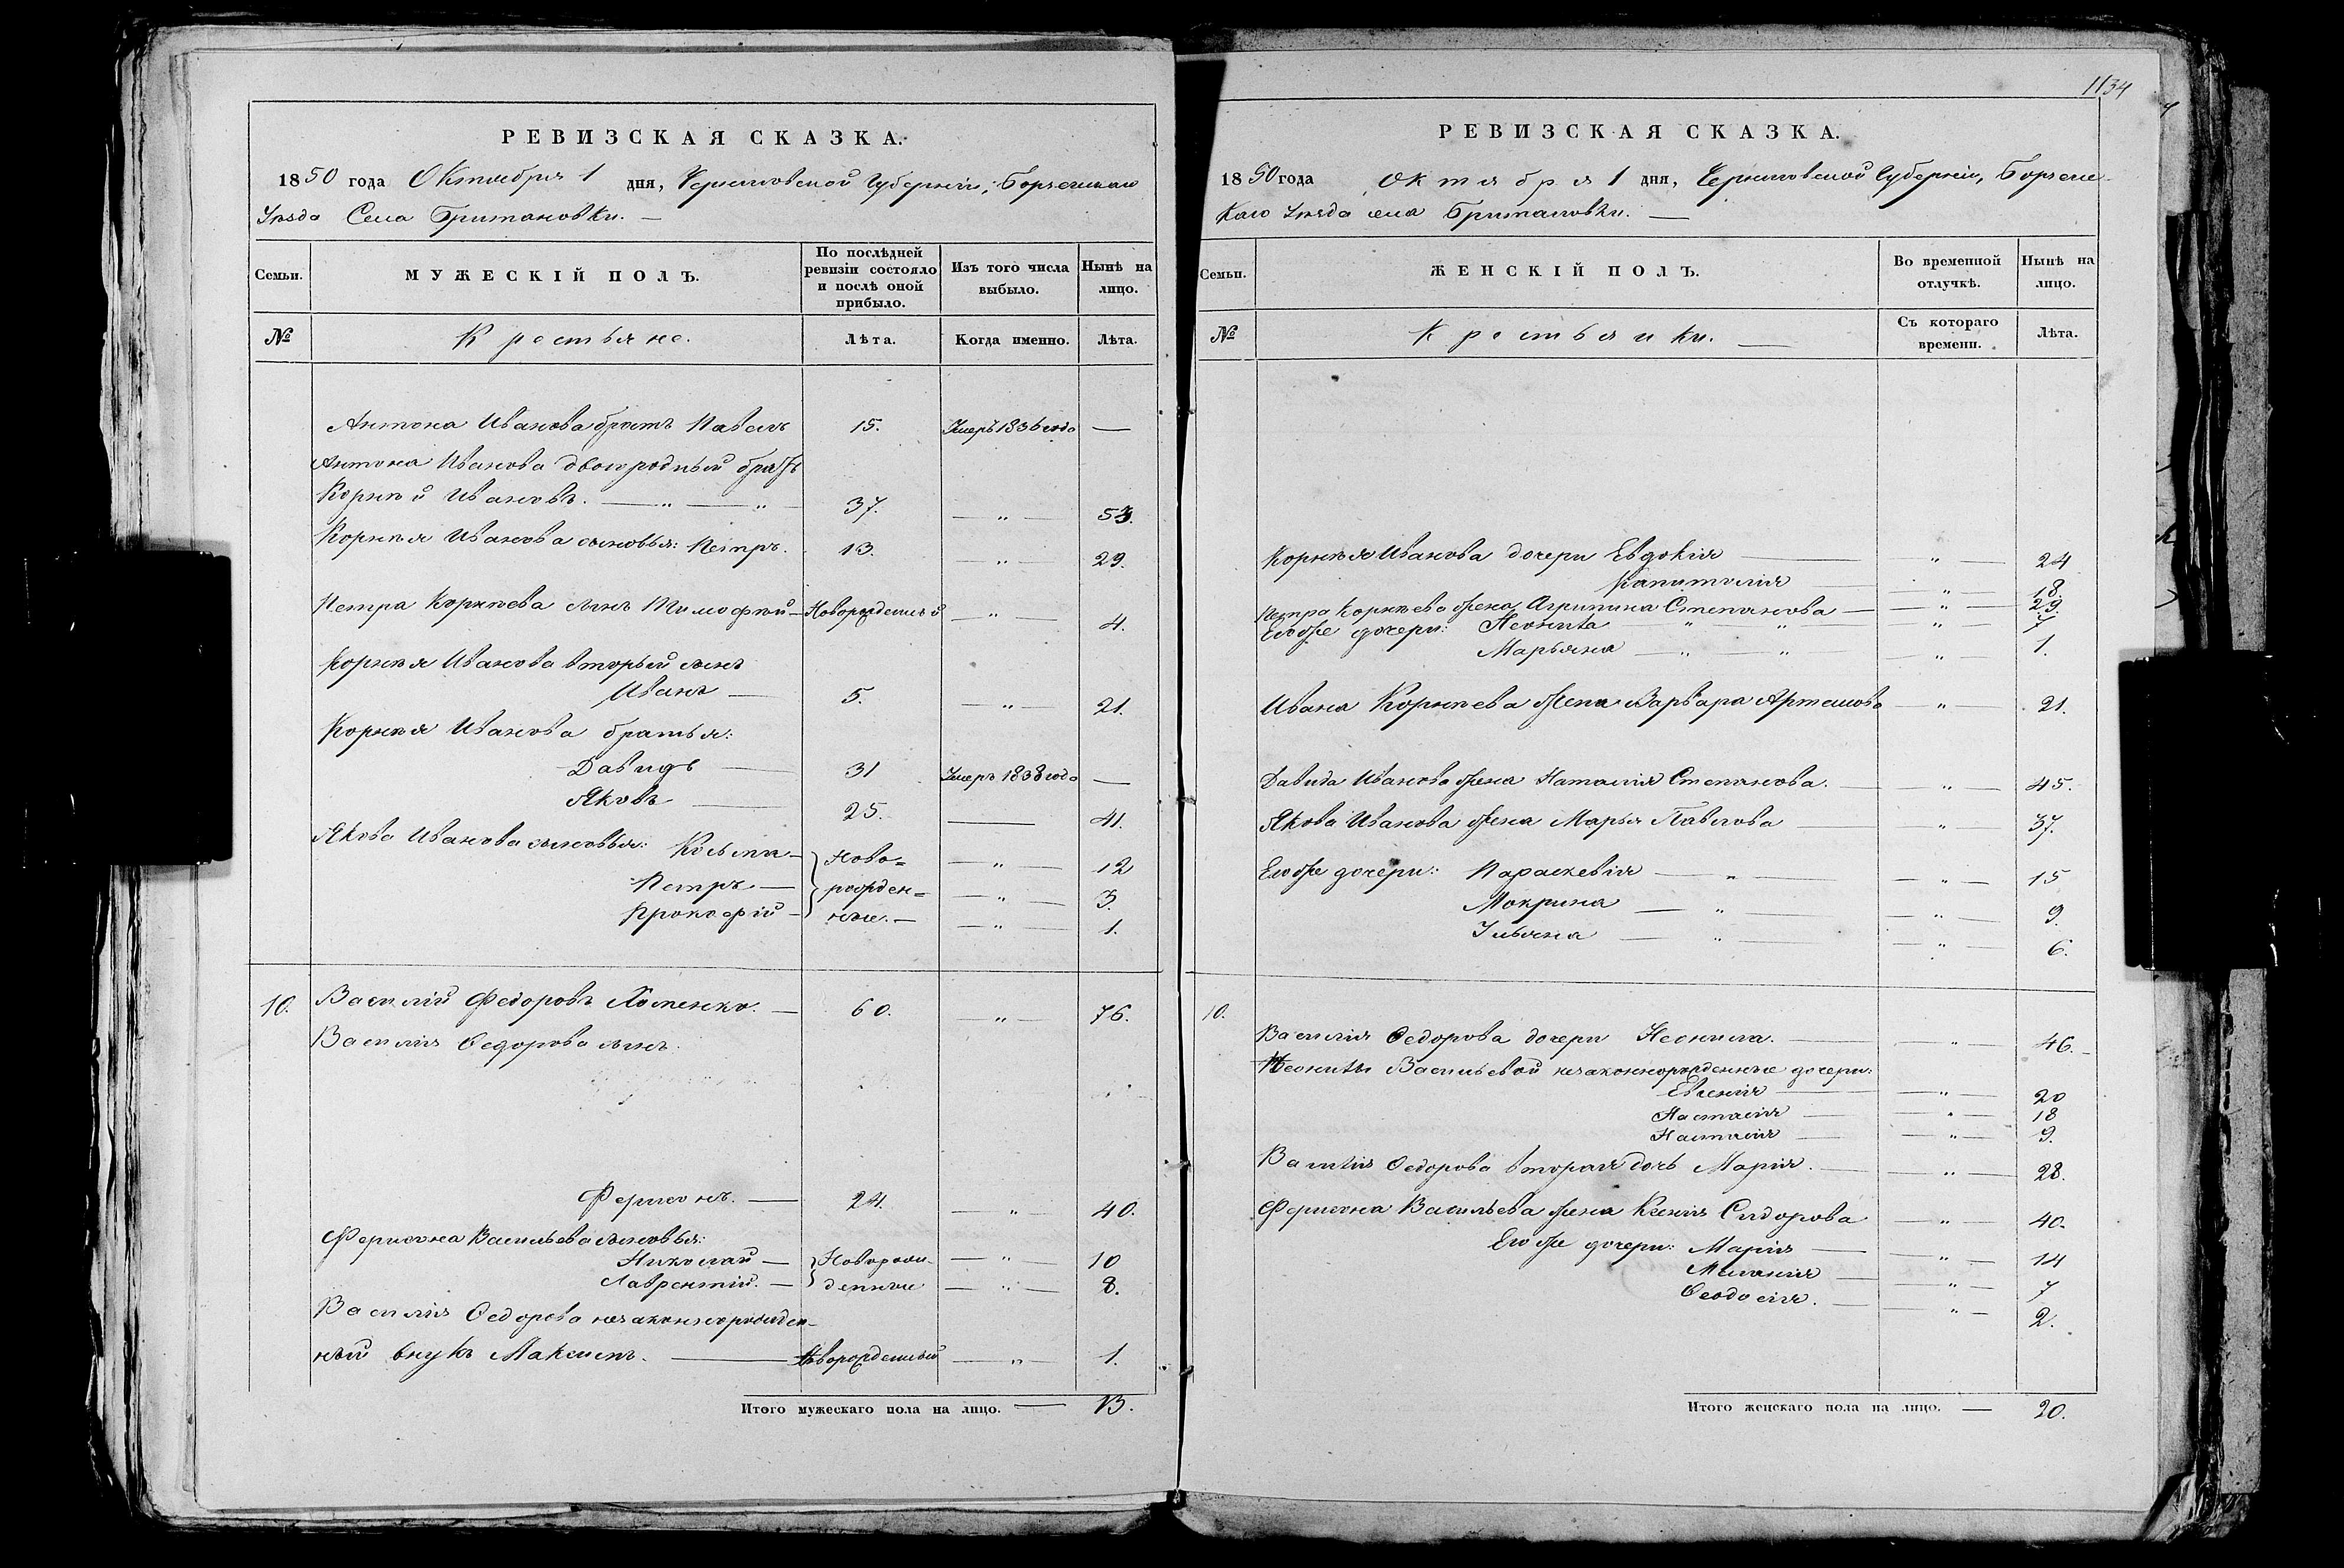 РЕВИЗСКАЯ СКАЗКА.
1850 года Октября 1 дня, Черниговской Губерніи, Борзенскаго
Уѣзда Села Британовки. —
Семьи.
МУЖЕСКІЙ ПОЛЪ.
По послѣдней ревизіи состояло и послѣ оной прибыло.
Изъ того числа выбыло.
Нынѣ на лицо.
№
Крестьяне.
Лѣта.
Когда именно.
Лѣта.
Антона Иванова братъ Павелъ 15. Умеръ 1836 года —
Антона Иванова двоюродный братъ
Корнѣй Ивановъ. — „ — „ 37. — „ — 53.
Корнѣя Иванова сыновья: Петръ. 13. — „ — 29.
Петра Корнѣева сынъ Тимофѣй — Новорожденный — „ — 4.
Корнѣя Иванова вторый сынъ
Иванъ — 5. — „ — 21.
Корнѣя Иванова братья:
Давидъ — 31 Умеръ 1838 года —
Яковъ — 25. — 41.
Якова Иванова сыновья: Косьма — Ново= — „ — 12
Петръ — рожден= — „ — 3.
Прокофій — ные. — — „ — 1.
10. Василій Федоровъ Хоменко. — 60. — „ — 76.
Василія Федорова сынъ
Ферисонъ. — 24. — „ — 40.
Ферисона Васильева сыновья:
Николай — Новорож- — „ — 10
Лаврентій. — денные — „ — 8.
Василія Федорова незаконнорожден-
ный внукъ Максимъ. — Новорожденный — „ — 1.
Итого мужескаго пола на лицо. — 13.
1134
РЕВИЗСКАЯ СКАЗКА.
1850 года Октября 1 дня, Черниговской Губерніи, Борзенс-
каго Уѣзда села Британовки. —
Семьи.
ЖЕНСКІЙ ПОЛЪ.
Во временной отлучкѣ.
Нынѣ на лицо.
№
Крестьянки. —
Съ котораго времени.
Лѣта.
Корнѣя Иванова дочери Евдокія — „ — 24
Капитолія — „ — 18.
Петра Корнѣева жена Агрипина Степанова — „ — 29.
Егоже дочери: Неонила „ „ — „ — 7
Марьяна — „ — „ — „ — 1.
Ивана Корнѣева жена Варвара Артемова — „ — 21.
Давида Иванова жена Наталія Степанова. — „ — 45.
Якова Иванова жена Марья Павлова — „ — 37.
Егоже дочери: Параскевія — „ — „ — 15
Мокрина — „ — „ — 9.
Ульяна — „ — „ — 6.
10.
Василія Федорова дочери Неонила. — „ — 46.
Неонилы Васильевой незаконнорожденные дочери:
Евгенія — „ — 20
Настасія — „ — 18
Настасія — „ — 9.
Василія Федорова вторая дочь Марія. — „ — 28.
Ферисона Васильева жена Ксенія Сидорова — „ — 40.
Егоже дочери: Марія — „ — 14
Меланія — „ — 7
Феодосія. — „ — 2.
Итого женскаго пола на лицо. — 20.